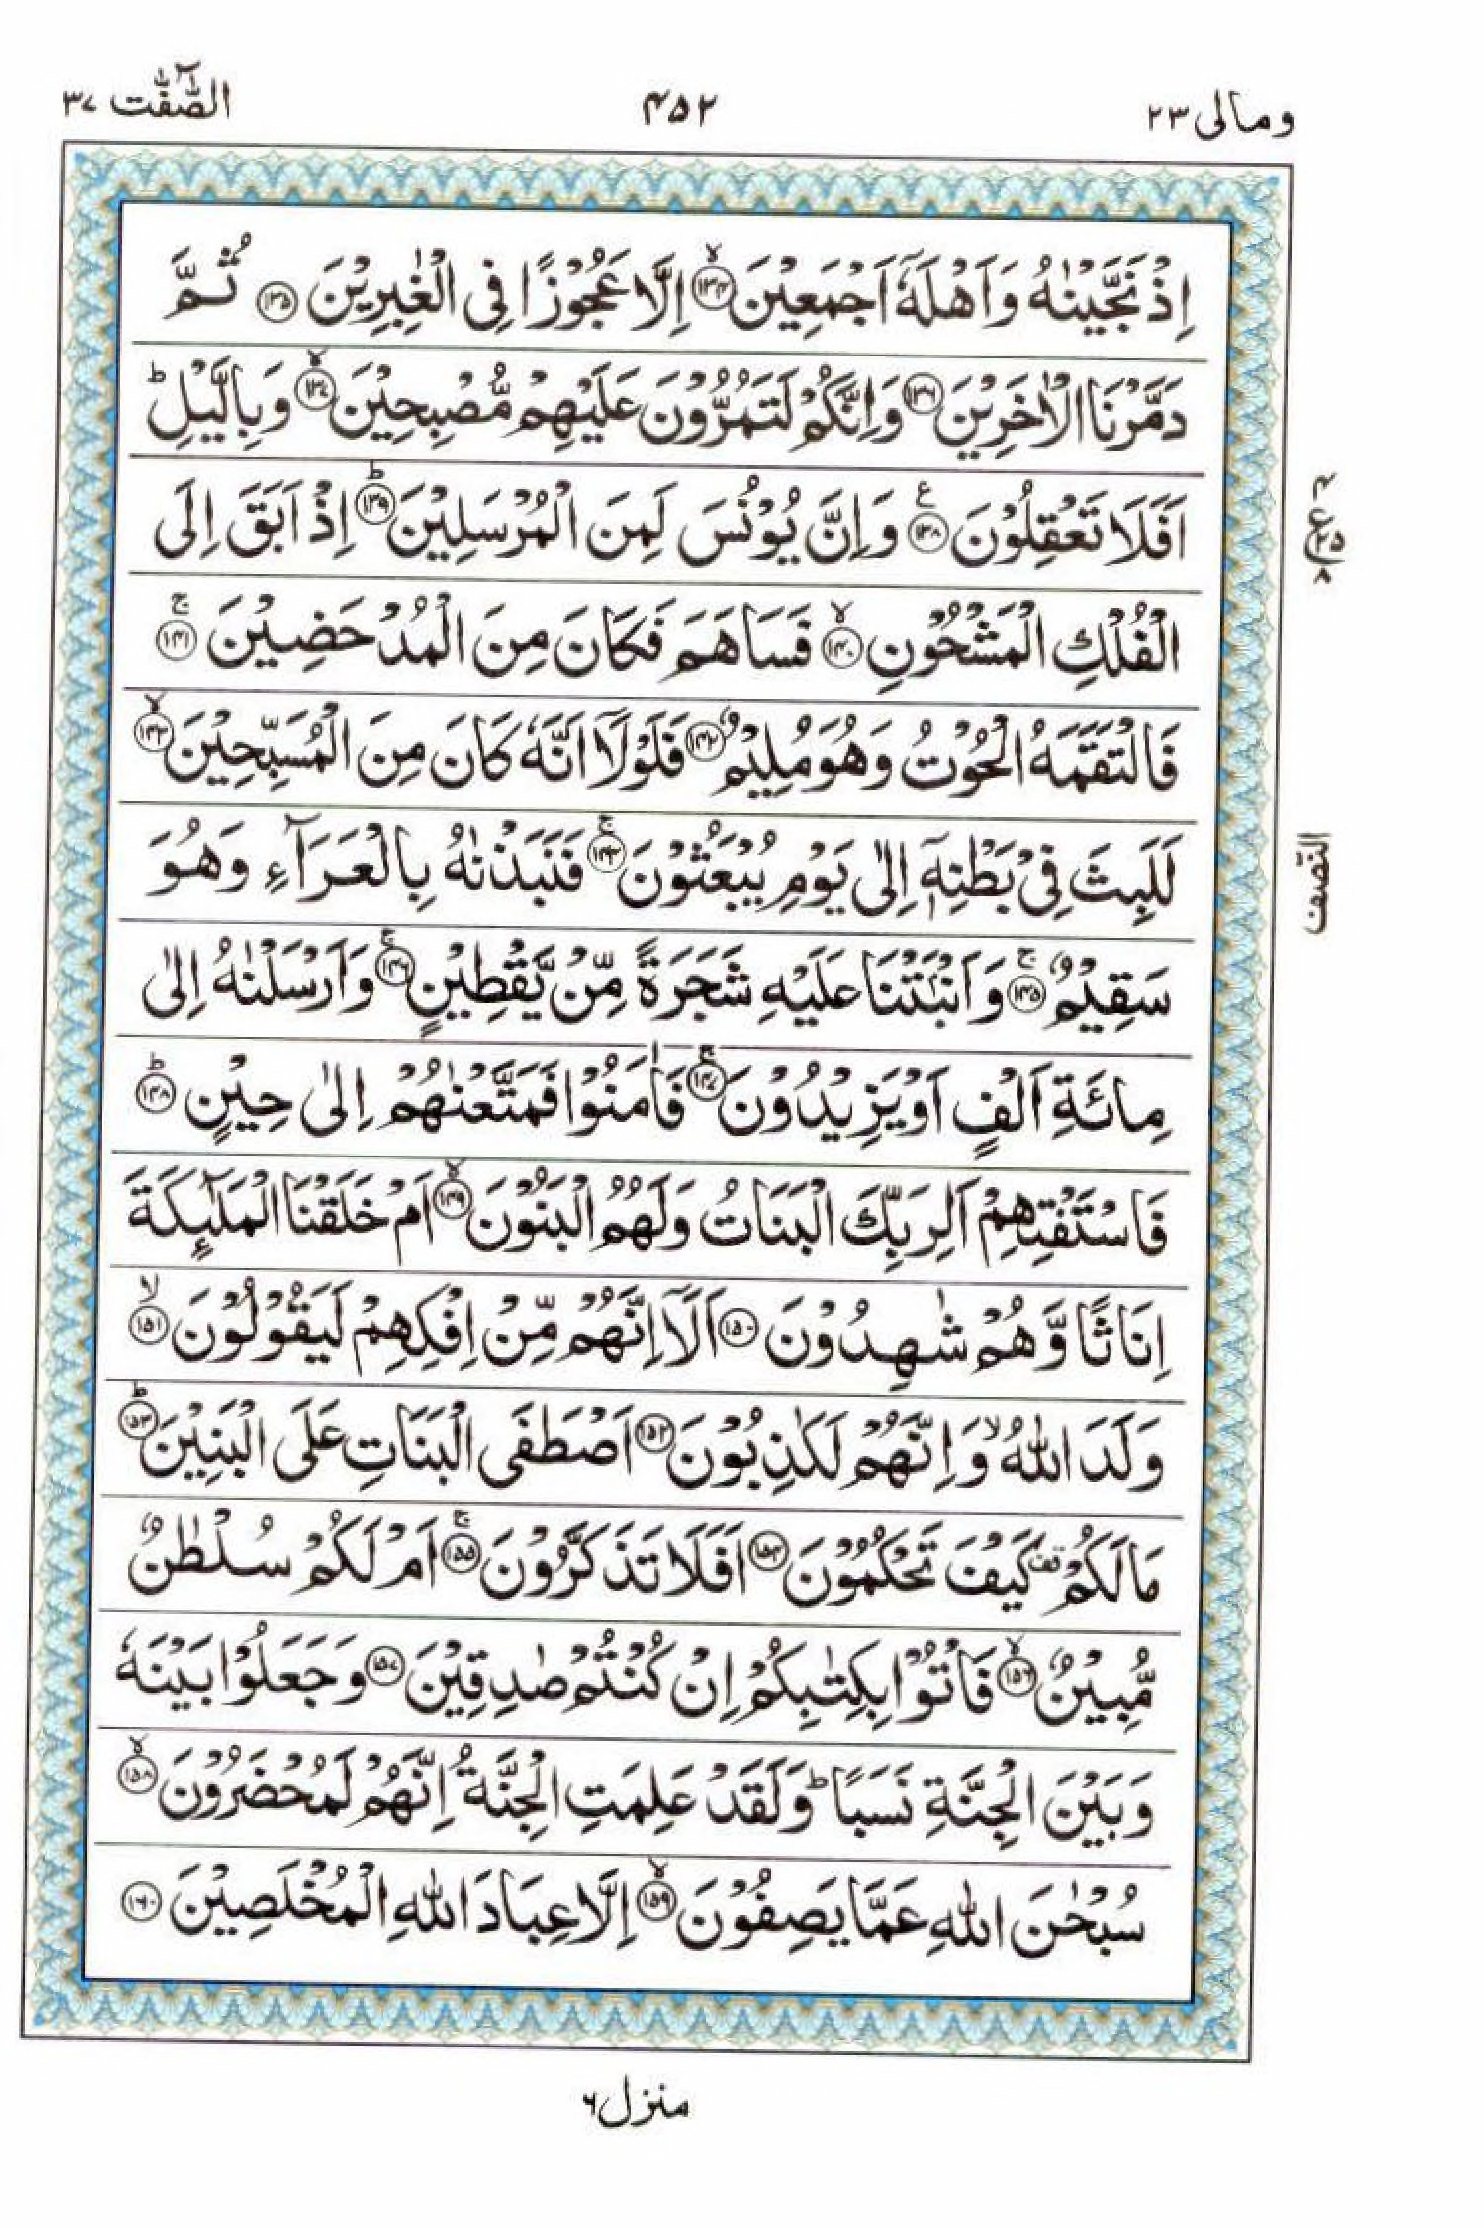 ومالی ۲۳
۴۵۲
الصّٰٓفّٰت ۳۷
اِذْ نَجَّيْنٰهُ وَاَهْلَهٗۤ اَجْمَعِيْنَ ۙ‏﴿۱۳۴﴾ اِلَّا عَجُوْزًا فِى الْغٰبِرِيْنَ ‏﴿۱۳۵﴾ ثُمَّ
دَمَّرْنَا الْاٰخَرِيْنَ ‏﴿۱۳۶﴾ وَاِنَّكُمْ لَتَمُرُّوْنَ عَلَيْهِمْ مُّصْبِحِيْنَ ۙ‏﴿۱۳۷﴾ وَبِالَّيْلِ ؕ
اَفَلَا تَعْقِلُوْنَ ع‏﴿۱۳۸﴾ وَاِنَّ يُوْنُسَ لَمِنَ الْمُرْسَلِيْنَ ؕ‏﴿۱۳۹﴾ اِذْ اَبَقَ اِلَى
الْفُلْكِ الْمَشْحُوْنِ ۙ‏﴿۱۴۰﴾ فَسَاهَمَ فَكَانَ مِنَ الْمُدْحَضِيْنَ ۚ‏﴿۱۴۱﴾
فَالْتَقَمَهُ الْحُوْتُ وَهُوَ مُلِيْمٌ ‏﴿۱۴۲﴾ فَلَوْلَاۤ اَنَّهٗ كَانَ مِنَ الْمُسَبِّحِيْنَ ۙ‏﴿۱۴۳﴾
لَلَبِثَ فِىْ بَطْنِهٖۤ اِلٰى يَوْمِ يُبْعَثُوْنَ ۚ‏﴿۱۴۴﴾ فَنَبَذْنٰهُ بِالْعَرَآءِ وَهُوَ
سَقِيْمٌ ۚ‏﴿۱۴۵﴾ وَاَنْۢبَتْنَا عَلَيْهِ شَجَرَةً مِّنْ يَّقْطِيْنٍ ۚ‏﴿۱۴۶﴾ وَاَرْسَلْنٰهُ اِلٰى
مِائَةِ اَلْفٍ اَوْ يَزِيْدُوْنَ ۚ‏﴿۱۴۷﴾ فَاٰمَنُوْا فَمَتَّعْنٰهُمْ اِلٰى حِيْنٍ ؕ‏﴿۱۴۸﴾
فَاسْتَفْتِهِمْ اَلِرَبِّكَ الْبَنَاتُ وَلَهُمُ الْبَنُوْنَ ۙ‏﴿۱۴۹﴾ اَمْ خَلَقْنَا الْمَلٰٓئِكَةَ
اِنَاثًا وَّهُمْ شٰهِدُوْنَ ‏﴿۱۵۰﴾ اَلَاۤ اِنَّهُمْ مِّنْ اِفْكِهِمْ لَيَقُوْلُوْنَ ۙ‏﴿۱۵۱﴾
وَلَدَ اللّٰهُ ۙ وَاِنَّهُمْ لَكٰذِبُوْنَ ‏﴿۱۵۲﴾ اَصْطَفَى الْبَنَاتِ عَلَى الْبَنِيْنَ ؕ‏﴿۱۵۳﴾
مَا لَكُمْ قف كَيْفَ تَحْكُمُوْنَ ‏﴿۱۵۴﴾ اَفَلَا تَذَكَّرُوْنَ ۚ‏﴿۱۵۵﴾ اَمْ لَكُمْ سُلْطٰنٌ
مُّبِيْنٌ ۙ‏﴿۱۵۶﴾ فَاْتُوْا بِكِتٰبِكُمْ اِنْ كُنْتُمْ صٰدِقِيْنَ ‏﴿۱۵۷﴾ وَجَعَلُوْا بَيْنَهٗ
وَبَيْنَ الْجِنَّةِ نَسَبًا ؕ وَلَقَدْ عَلِمَتِ الْجِنَّةُ اِنَّهُمْ لَمُحْضَرُوْنَ ۙ‏﴿۱۵۸﴾
سُبْحٰنَ اللّٰهِ عَمَّا يَصِفُوْنَ ۙ‏﴿۱۵۹﴾ اِلَّا عِبَادَ اللّٰهِ الْمُخْلَصِيْنَ ‏﴿۱۶۰﴾
ع ۲۵ ۸
النصف
منزل ۶